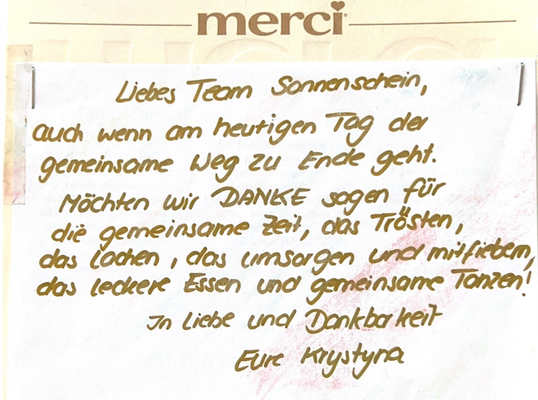 merci
Liebes Team Sonnenschein,
auch wenn am heutigen Tag der
gemeinsame Weg zu Ende geht.
Möchten wir DANKE sagen für
die gemeinsame Zeit, das Trösten,
das lachen, das umsorgen und mitfiebern,
das leckere Essen und gemeinsame Tanzen!
In Liebe und Dankbarkeit
Eure Krystyna